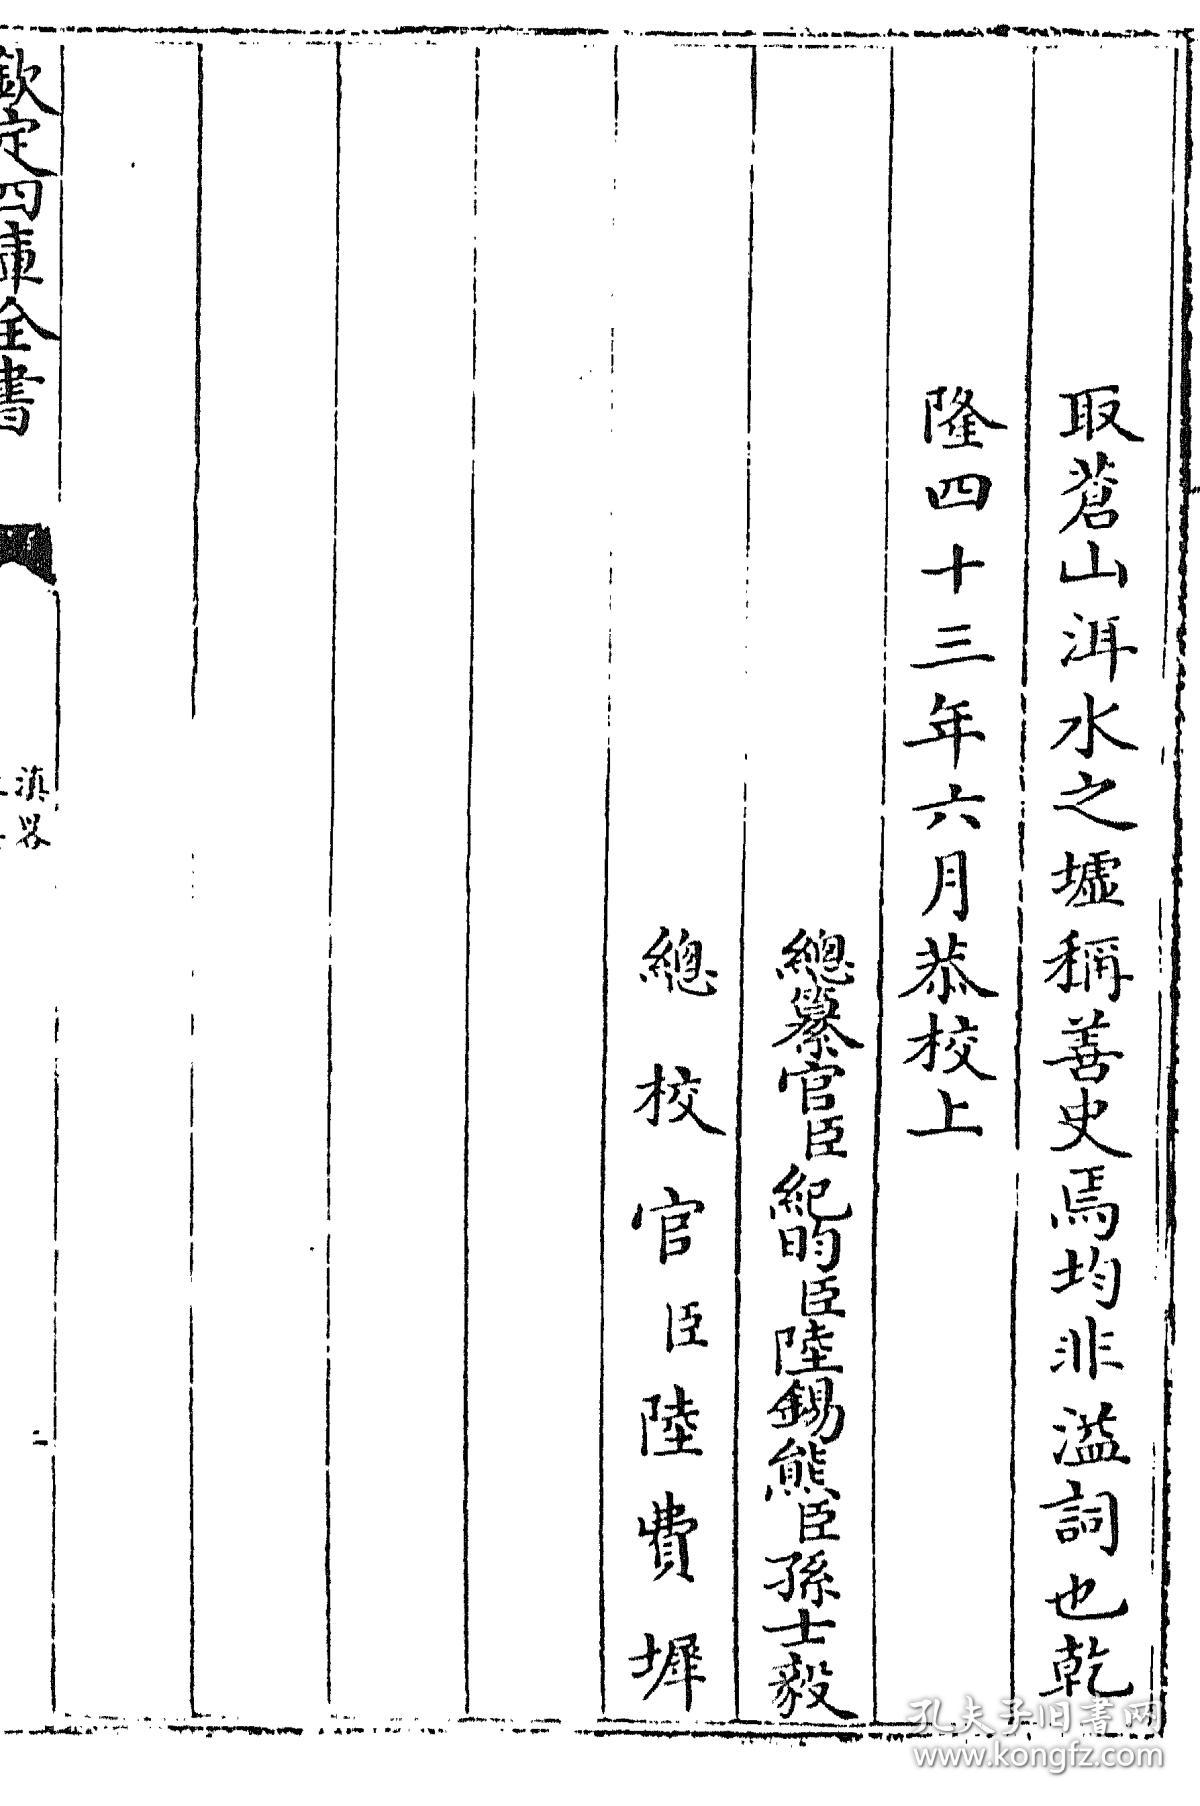 取蒼山洱水之墟稱善史焉均非溢詞也乾
隆四十三年六月恭校上
總纂官臣紀昀臣陸錫熊臣孫士毅
總校官臣陸費墀
欽定四庫全書
滇畧
孔夫子旧书网
www.kongfz.com